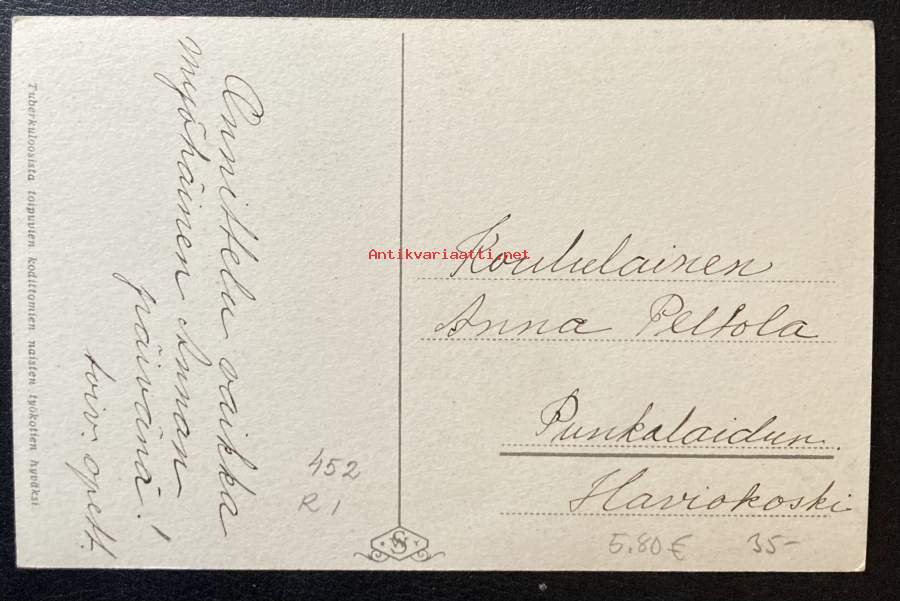 Tuberkuloosista toipuvien kodittomien naisten työkotien hyväksi
Onnittelu vaikka
myöhäinen Annan
päivänä!
toiv. opett.
452
R 1
Antikvariaatti.net
Koululainen
Anna Peltola
Punkalaidun.
Haviokoski
5.80 € 35-